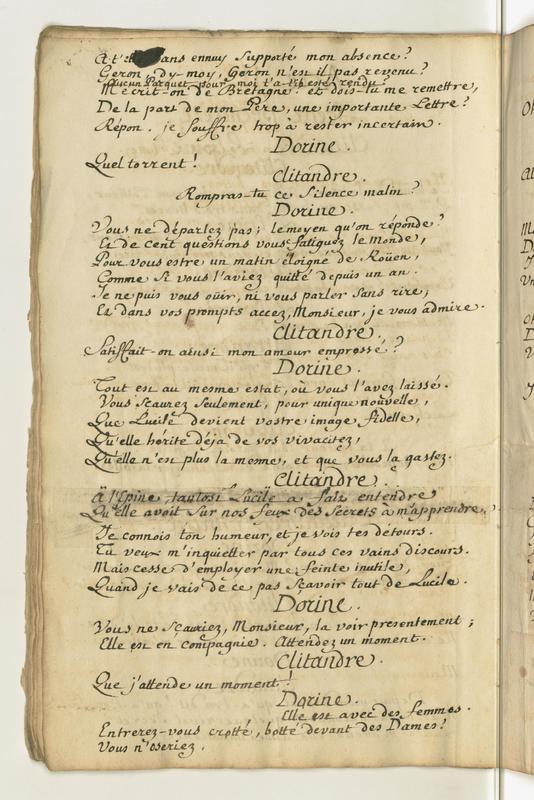 A t'il sans ennuy Supporté mon absence?
Geron, dy-moy, Geron n'est il pas revenu?
Aucun Parquet pour moi t'a-t-il esté rendu?
M'écrit-on de Bretagne? et dois-tu me remettre,
De la part de mon Pere, une importante Lettre?
Répon. je souffre trop à rester incertain.
Dorine.
Quel torrent!
Clitandre.
Rompras-tu ce Silence malin?
Dorine.
Vous ne déparlez pas; le moyen qu'on réponde?
Et de cent questions vous fatiguez le monde,
Pour vous estre un matin éloigné de Roüen,
Comme Si vous l'aviez quitté depuis un an.
Je ne puis vous oüir, ni vous parler Sans rire,
Et dans vos prompts accez, Monsieur, je vous admire.
Clitandre.
Satisfait-on ainsi mon amour empressé?
Dorine.
Tout est au mesme estat, où vous l'avez laissé.
Vous Sçaurez Seulement, pour unique nouvelle,
Que Lucile devient vostre image fidelle,
Qu'elle hérite déja de vos vivacitez,
Qu'elle n'est plus la mesme, et que vous la gastez.
Clitandre.
A l'Epine tantost Lucile a fait entendre
Qu'elle avoit Sur nos feux des Secrets à m'apprendre,
Je connois ton humeur, et je vois tes détours.
Tu veux m'inquietter par tous ces vains discours.
Mais cesse d'employer une feinte inutile,
Quand je vais de ce pas Sçavoir tout de Lucile.
Dorine.
Vous ne Sçauriez, Monsieur, la voir presentement;
Elle est en compagnie. Attendez un moment.
Clitandre.
Que j'attende un moment!
Dorine.
Elle est avec des femmes.
Entrerez-vous crotté, botté devant des Dames?
Vous n'oseriez.